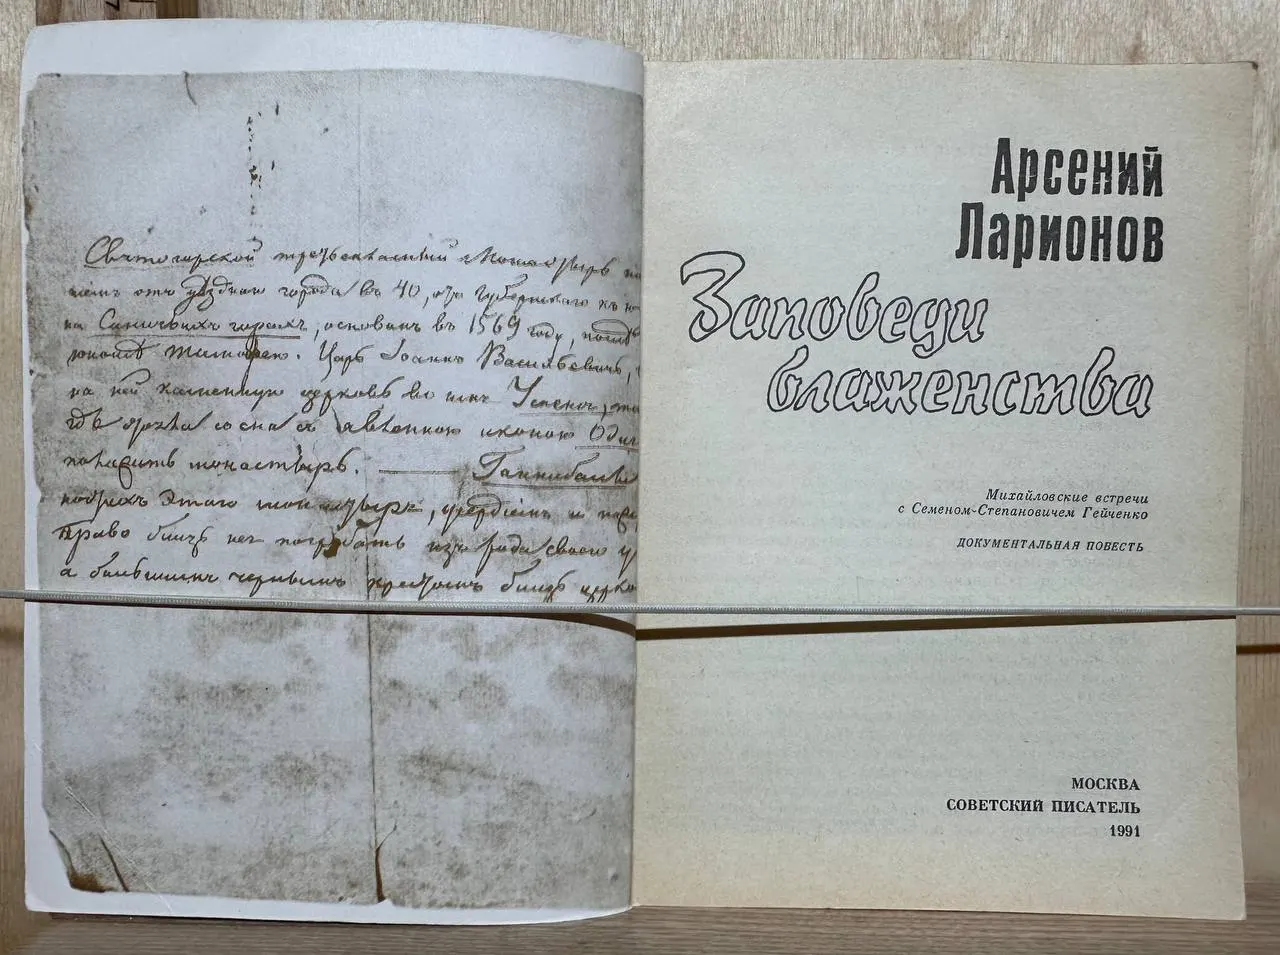 Святогорской третьеклассный Монастырь
от уѣзднаго города въ 40, отъ Губернскаго въ
на Синичьихъ горахъ, основанъ въ 1569 году,
Тимофею. Царь Іоаннъ Васильевичь,
на ней каменную церковь во имя Успенія,
гдѣ сосна съ явленною иконою Один
монастырь. Ганнибалъ
этаго монастыря,
Право бысть погребать изъ рода своего
а большимъ чернымъ крестомъ близь церкви
Арсений
Ларионов
Заповеди
блаженства
Михайловские встречи
с Семеном-Степановичем Гейченко
ДОКУМЕНТАЛЬНАЯ ПОВЕСТЬ
МОСКВА
СОВЕТСКИЙ ПИСАТЕЛЬ
1991